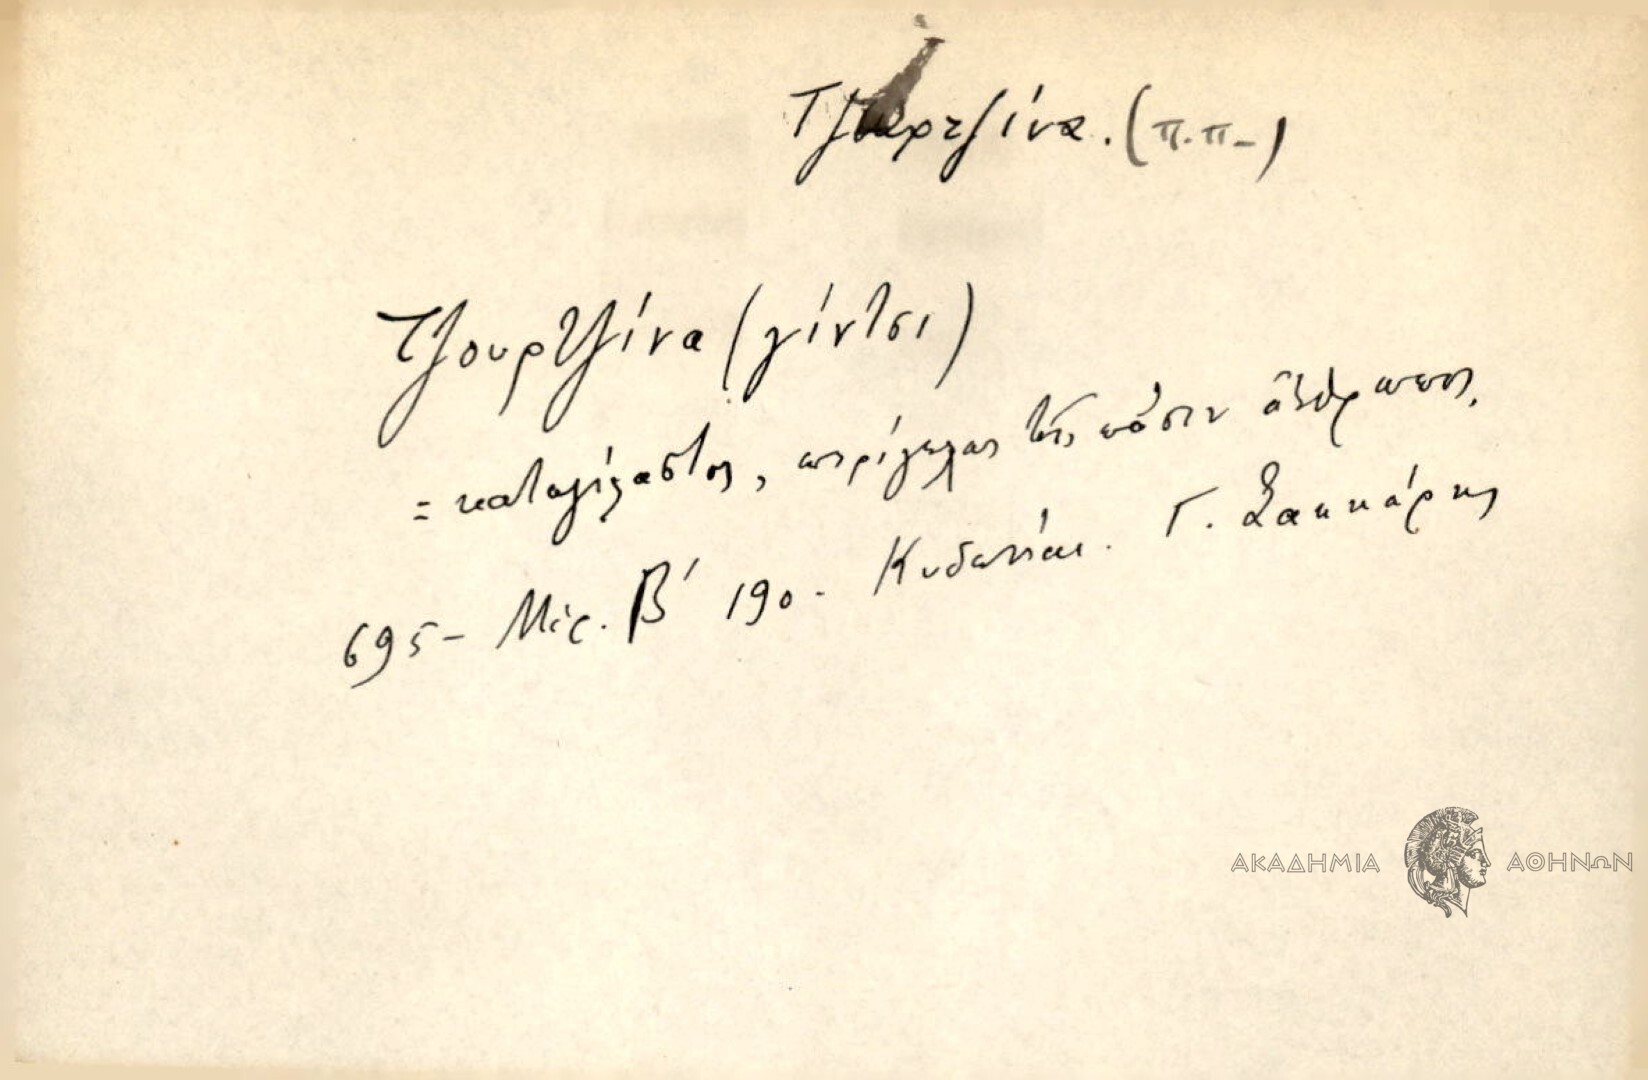 Τζουρτζίνα. (π.π-)
Τζουρτζίνα (γίντσι)
= καταγέλαστος, περίγελας τοῖς πᾶσιν ἄνθρωπος.
695- Μέρ. Β΄ 190. Κυδωνίαι. Γ. Σακκάρης
ΑΚΑΔΗΜΙΑ ΑΘΗΝΩΝ